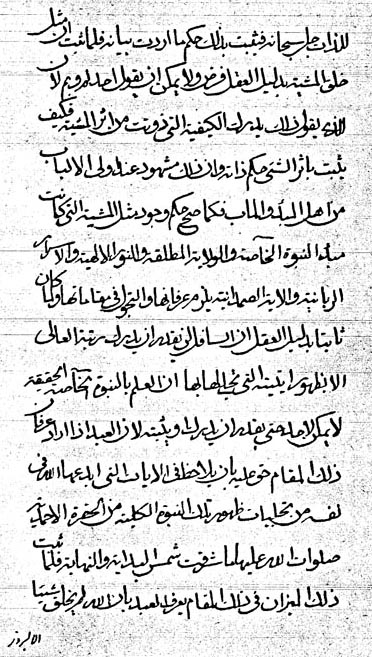 للذات جل سبحانه فيثبت بذلك حكم ما اردت بيانه فلما ثبت ان مثل
خلق المشية بدليل العقل فرض ولا يمكن ان يقول احد لم وبم لان
الذي يقول ذلك يدرك الكيفية التي ذوتت من اثر المشية فكيف
يثبت باثر الشئ حكم ذاته وان ذلك مشهود عند اولى الالباب
من اهل المبدء والماب فكما صح حكم وجود مثل المشية التي كانت
مبدء النبوة الخاصة والولاية المطلقة والنور الالهية
الربانية والاية الصمدانية يلزم عرفانها في مقاماتها ولما كان
ثابتا بدليل العقل ان السافل لن يقدر ان يدرك رتبة العالى
الا بظهور انيته التي تجلى لها بها ان العلم بالنبوة الخاصة الحقيقة
لا يمكن لاحد حتى يقدر ان يدرك ويثبته لان العبد اذا اراد عرفان
ذلك المقام حق عليه بان يلاحظ في الايات التي ابدعها الله في
نفسه من تجليات ظهور تلك النبوة الكلية من الحضرة الاحمدية
صلوات الله عليها ما شرقت شمس البداية والنهاية فلما ثبت
ذلك الميزان في ذلك المقام يعرف العبد بان الله لم يخلق شيئا
الا لبروز